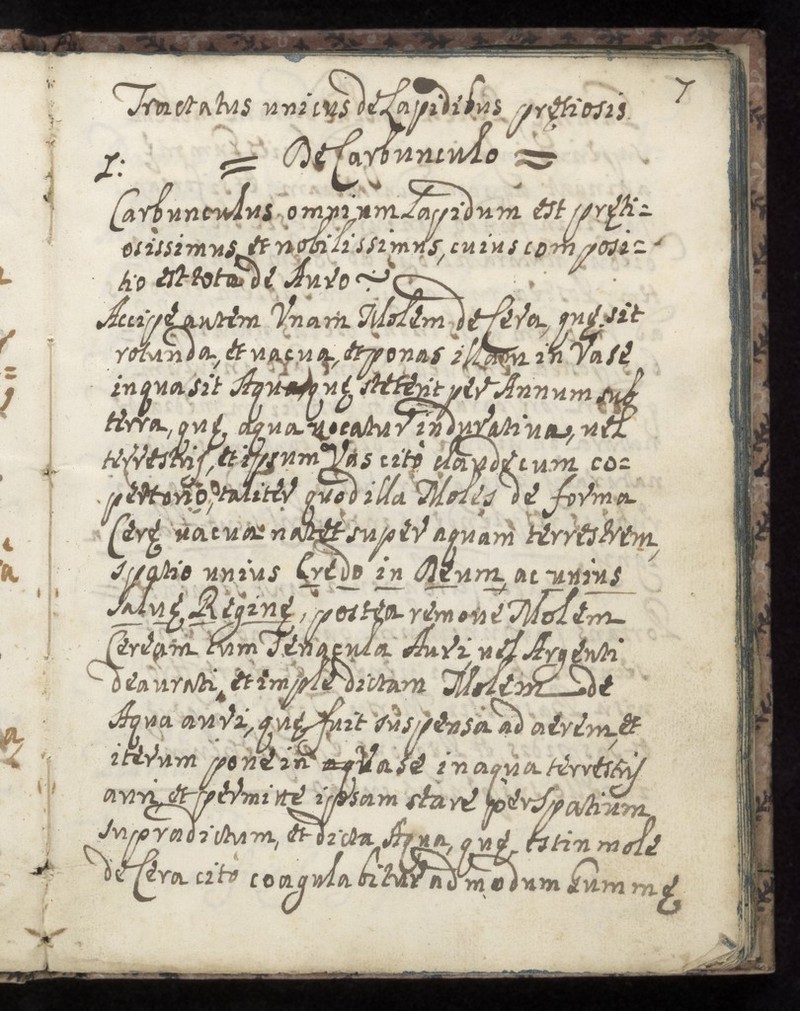 7
Tractatus unicus de Lapidibus prętiosis
I: = De Carbunculo =
Carbunculus omnium Lapidum est pręti=
osissimus, et nobilissimus, cuius composi=
tio est tota de Auro ~
Accipe autem Vnam Molem de Cera, quę sit
rotunda, et uacua, et ponas illam in Vase
in qua sit Aqua, quę steterit per Annum sub
terra, quę aqua uocatur induratiua, uel
terrestris, et ipsum Vas cito claude cum co=
pertorio, taliter quod illa Moles de forma
Cerę uacua natet super aquam terrestrem,
spatio unius Credo in Deum, ac unius
Saluę Reginę, postea remoue Molem
Ceream cum Tenacula Auri, uel Argenti
deaurati, et imple dictam Molem de
Aqua auri, quę fuit suspensa ad aerem, et
iterum pone in uase in aqua terrestris
auri, et permitte ipsam stare per spatium
supradictum, et dicta Aqua, quę est in mole
de Cera cito coagulabitur ad modum Gummę